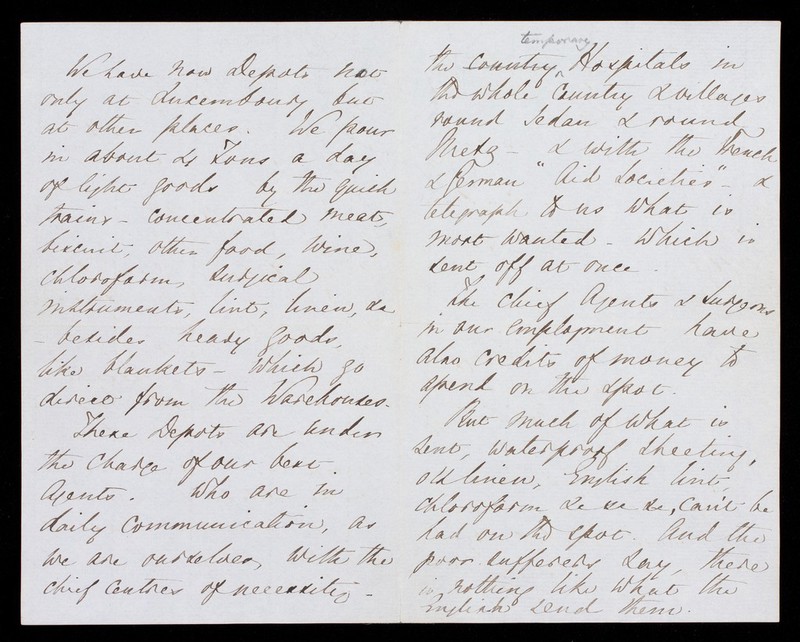 We have now Depots not
only at Luxembourg but
at other places. We pour
in about 4 Tons a day
of light goods by the quick
trains - concentrated meat,
biscuit, other food, wine,
chloroform, surgical
instruments, lint, linen, &c
- besides heavy goods,
like blankets - which go
direct from the Warehouses.
These Depots are under
the charge of our best
Agents. Who are in
daily communication, as
we are ourselves, with the
chief centres of necessity -
temporary
the country ^ Hospitals in
the whole Country & villages
round Sedan & round
Metz - & with the French
& German "Aid Societies" - &
telegraph to us what is
most wanted - which is
sent off at once.
The chief Agents & Surgeons
in our employment have
also credits of money to
spend on the spot.
But much of what is
sent, waterproof sheeting,
old linen, English lint,
chloroform &c &c &c, can't be
had on the spot. And the
poor sufferers say, there
is nothing like what the
English send them.